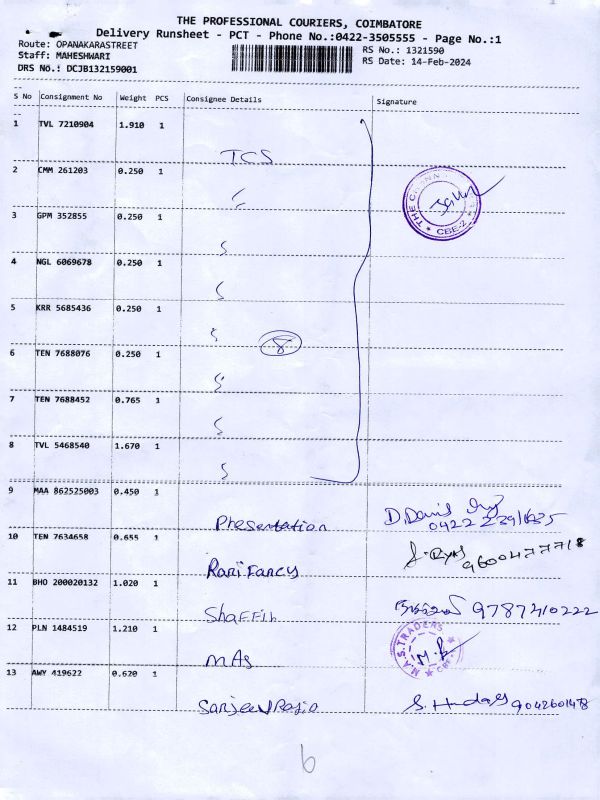 THE PROFESSIONAL COURIERS, COIMBATORE
Delivery Runsheet - PCT - Phone No.:0422-3505555 - Page No.:1
Route: OPANAKARASTREET
RS No.: 1321590
Staff: MAHESHWARI
RS Date: 14-Feb-2024
DRS No.: DCJB132159001
S No Consignment No Weight PCS Consignee Details Signature
1 TVL 7210904 1.910 1
TCS
2 CMM 261203 0.250 1
3 GPM 352855 0.250 1
CBE-2
4 NGL 6069678 0.250 1
5 KRR 5685436 0.250 1
8
6 TEN 7688076 0.250 1
7 TEN 7688452 0.765 1
8 TVL 5468540 1.670 1
9 MAA 862525003 0.450 1
Phesentation D.David
0422 2391635
10 TEN 7634658 0.655 1
Rani Fancy 9600477718
11 BHO 200020132 1.020 1
Shaffih 9787410222
12 PLN 1484519 1.210 1
MAS M.A.S. TRADERS
13 AWY 419622 0.620 1
9042601478
6